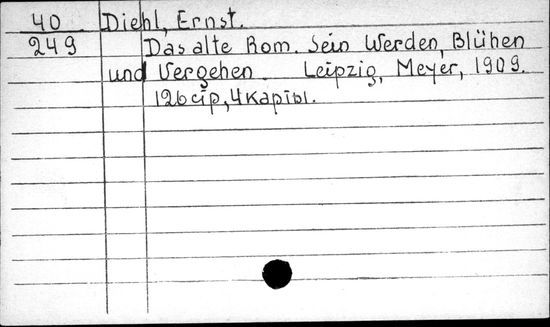 40 Diehl, Ernst.
249 Das alte Rom. Sein Werden, Blühen
und Vergehen Leipzig, Meyer, 1909.
126 стр, 4 карты.